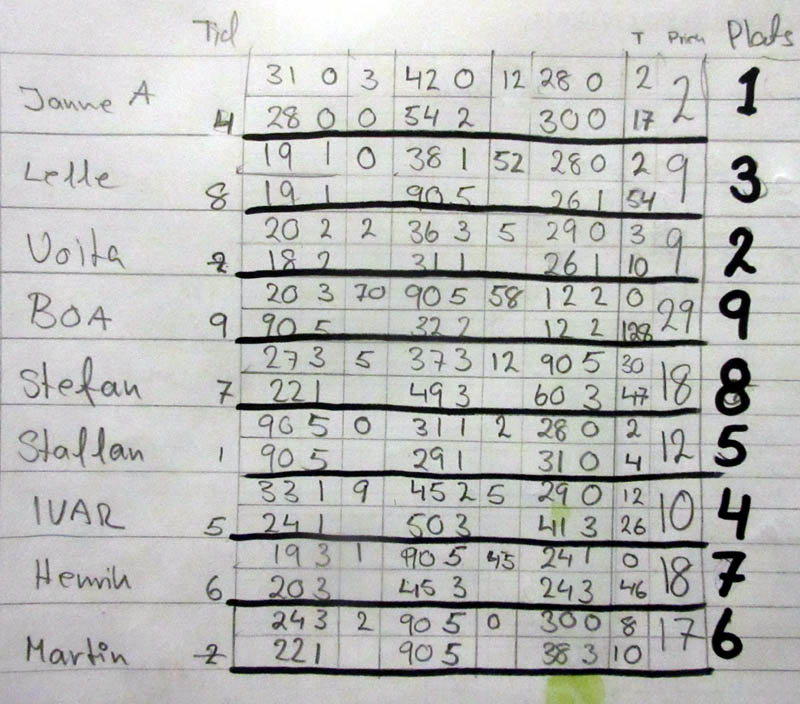 Tid T Prick Plats
Janne A 31 0 3 42 0 12 28 0 2 2 1
4 28 0 0 54 2 30 0 17
Lelle 19 1 0 38 1 52 28 0 2 9 3
8 19 1 90 5 26 1 54
Voita 20 2 2 36 3 5 29 0 3 9 2
2 18 2 31 1 26 1 10
BOA 20 3 70 90 5 58 12 2 0 29 9
9 90 5 32 2 12 2 128
Stefan 27 3 5 37 3 12 90 5 30 18 8
7 22 1 49 3 60 3 47
Staffan 90 5 0 31 1 2 28 0 2 12 5
1 90 5 29 1 31 0 4
IVAR 33 1 9 45 2 5 29 0 12 10 4
5 24 1 50 3 41 3 26
Henrik 19 3 1 90 5 45 24 1 0 18 7
6 20 3 45 3 24 3 46
Martin 24 3 2 90 5 0 30 0 8 17 6
2 22 1 90 5 38 3 10